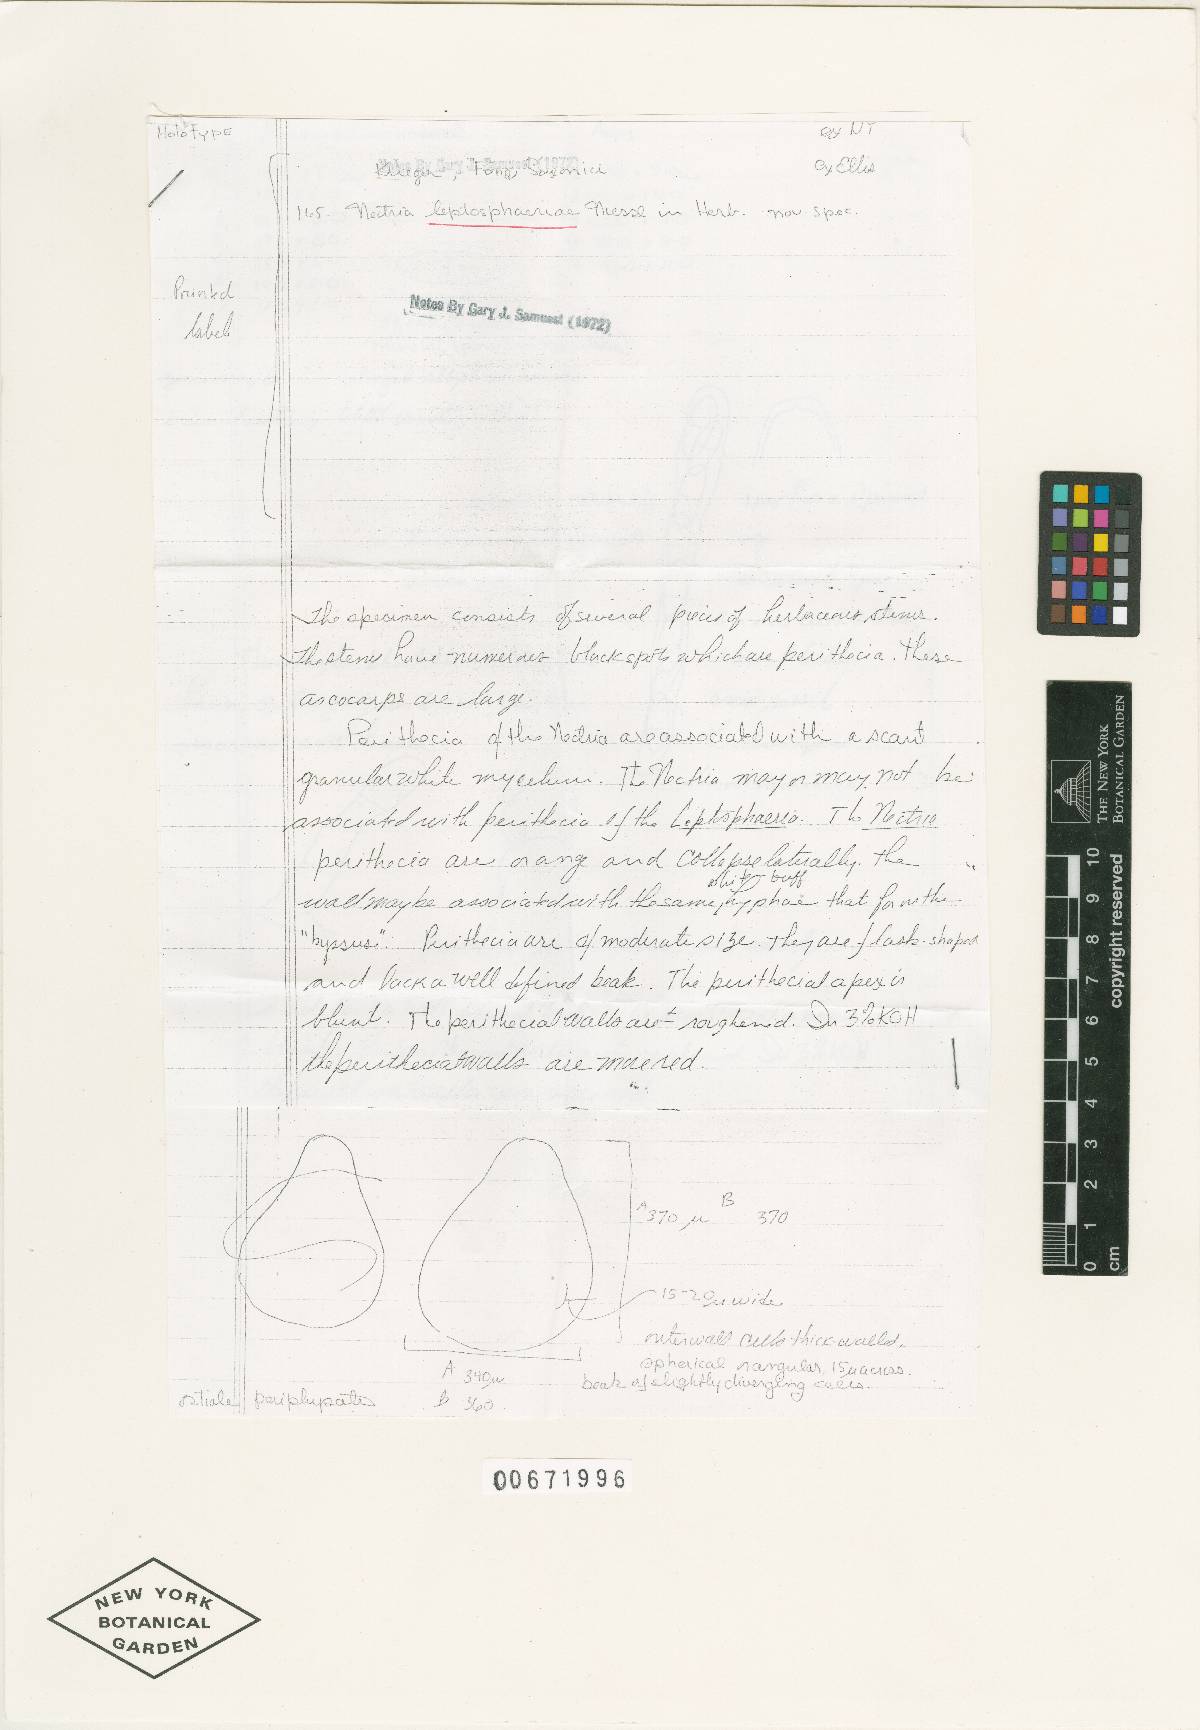 Holotype
ex NY
ex Ellis
Notes By Gary J. Samuest (1972)
Krieger, Fung. Saxonici
165. Nectria leptosphaeriae Niessl in Herb. nov spec.
Printed
label
Notes By Gary J. Samuest (1972)
The specimen consists of several pieces of herbaceous stems.
The stems have numerous black spots which are perithecia. These
ascocarps are large.
Perithecia of the Nectria are associated with a scant
granular white mycelium. The Nectria may or may not be
associated with perithecia of the Leptosphaeria. The Nectria
perithecia are orange and collapse laterally. The
white buff
wall may be associated with the same hyphae that form the
"byssus". Perithecia are of moderate size. They are flask-shaped
and lack a well defined beak. The perithecial apex is
blunt. The perithecial walls are ± roughened. In 3% KOH
the perithecial walls are more red.
A 370 µ B 370
15-20 µ wide
outer wall cells thick walled,
spherical or angular, 15 µ across.
beak of slightly diverging cells.
A 340 µ
B 360
ostiole periphysate
00671996
NEW YORK
BOTANICAL
GARDEN
THE NEW YORK
BOTANICAL GARDEN
copyright reserved
0 1 2 3 4 5 6 7 8 9 10
cm